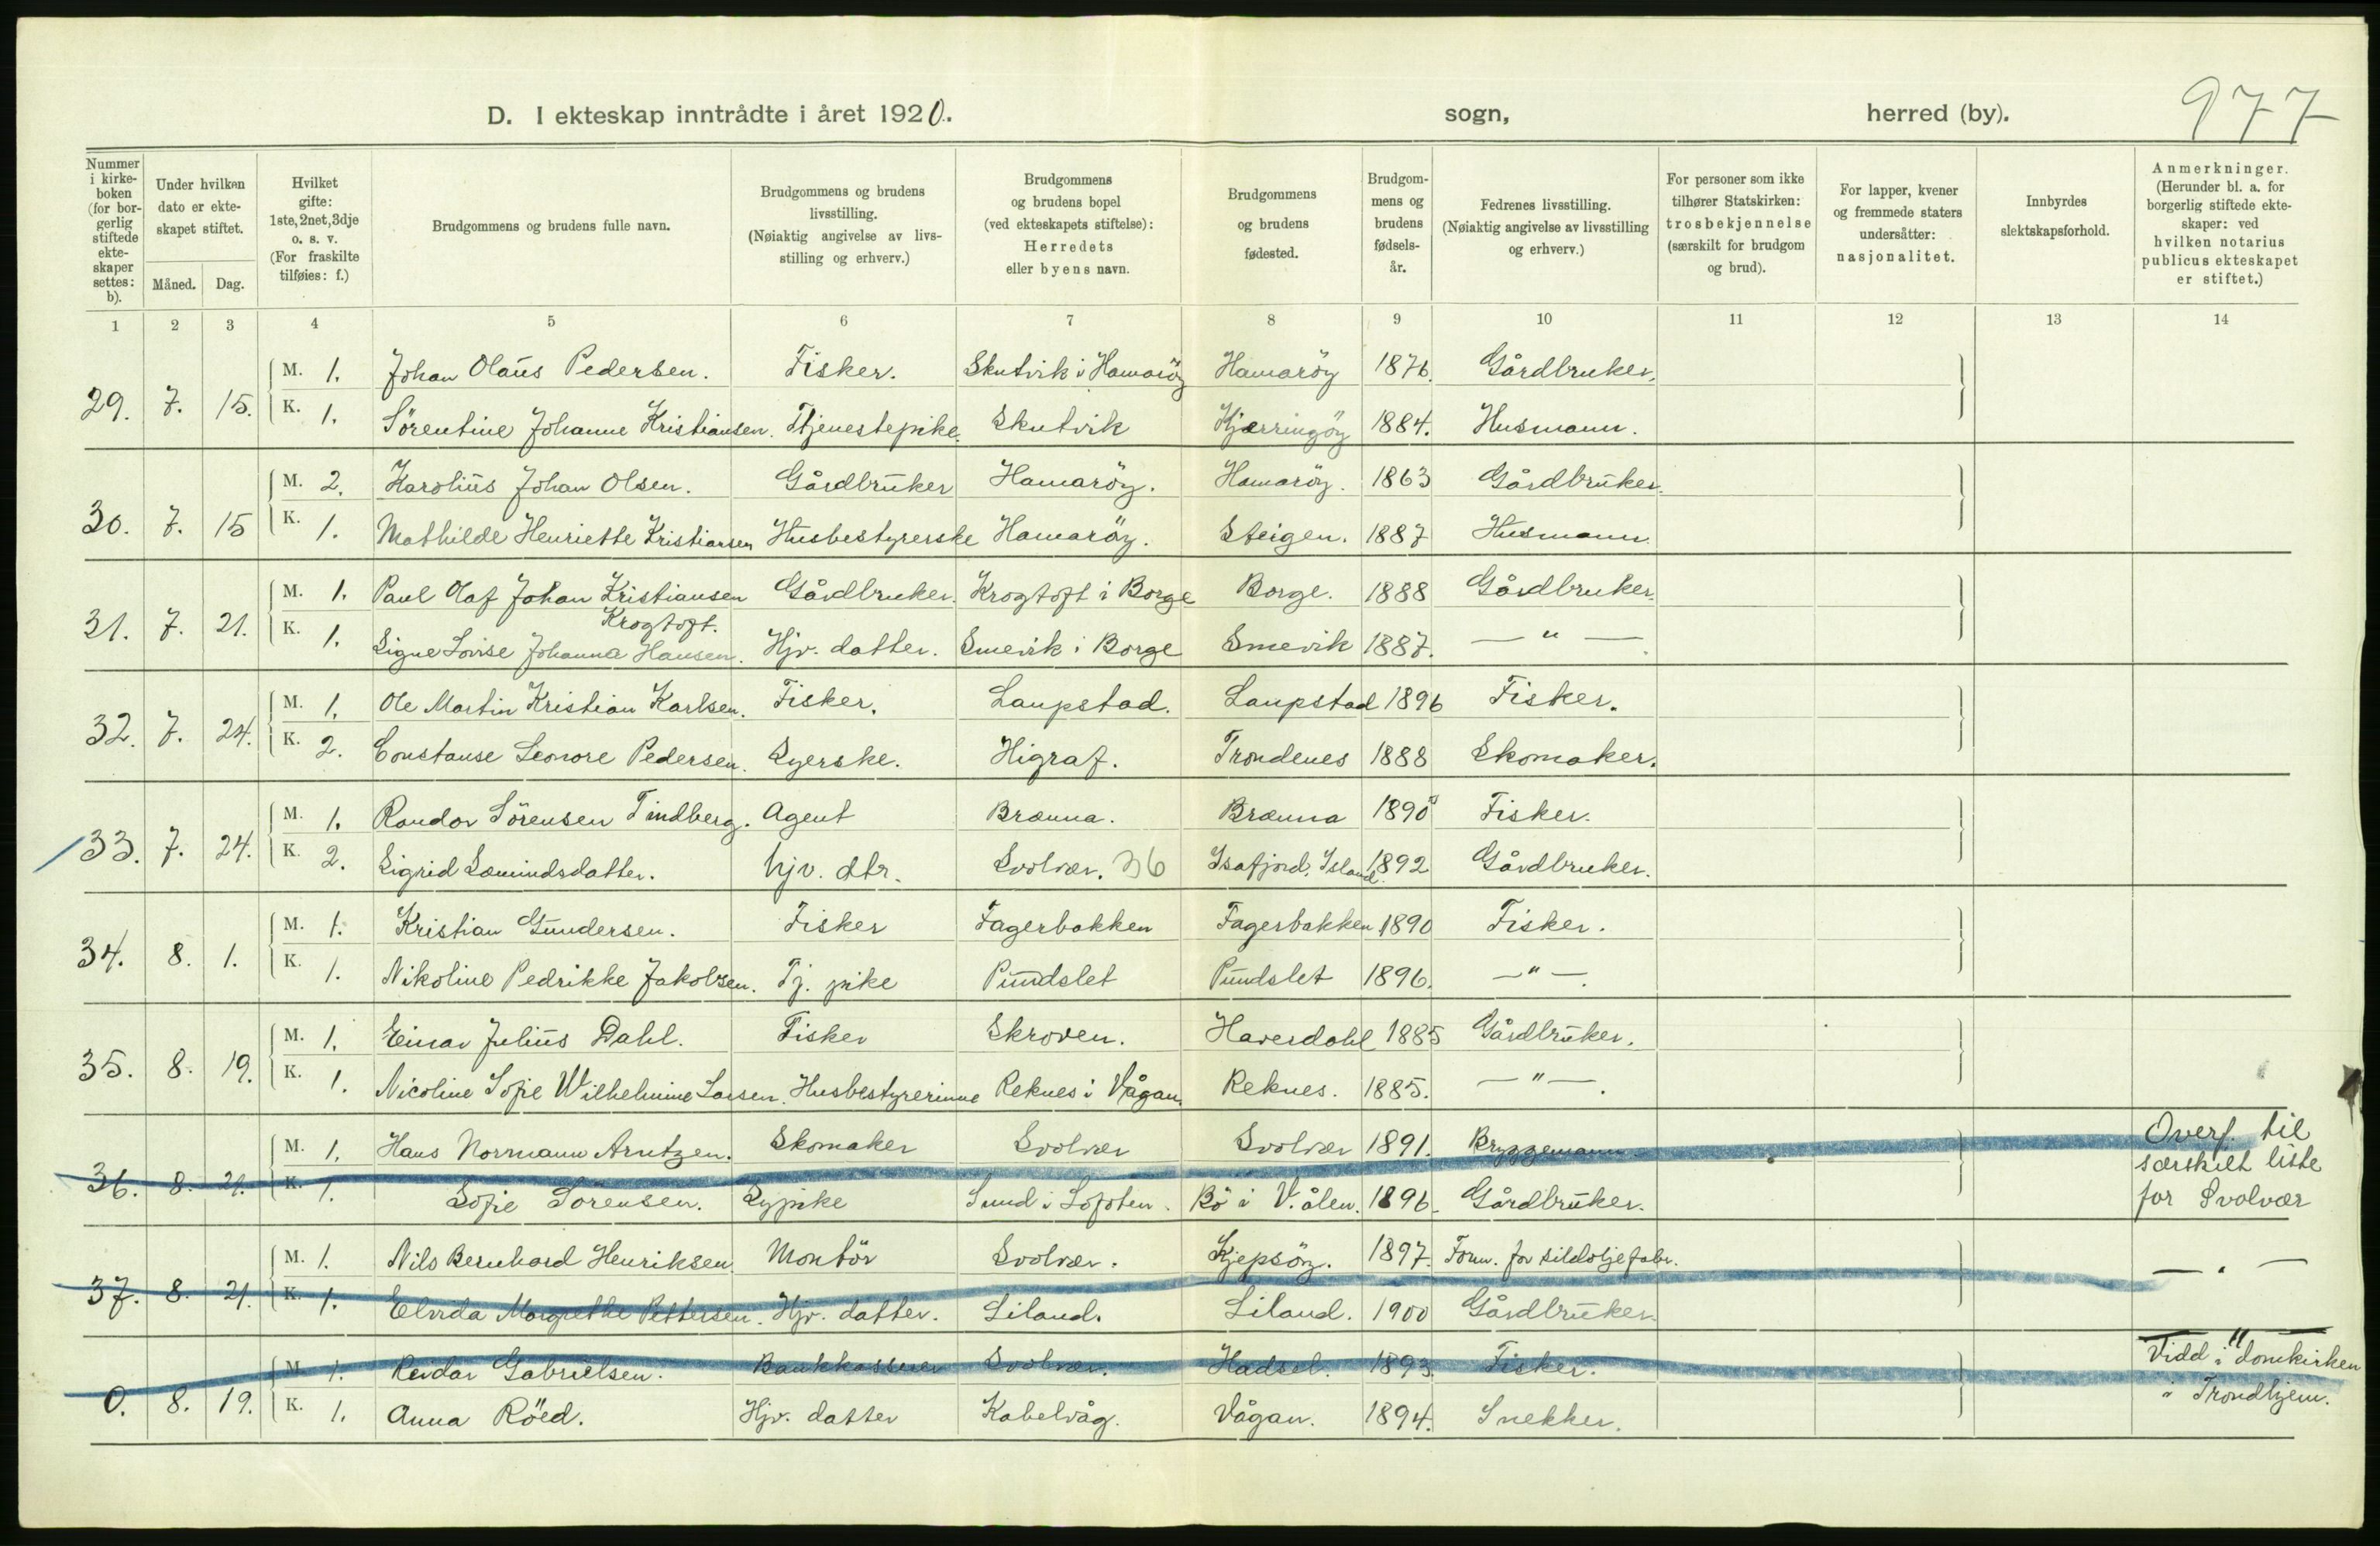 977
D. I ekteskap inntrådte i året 1920. sogn, herred (by).
Nummer i kirkeboken (for borgerlig stiftede ekteskaper settes: b).
Under hvilken dato er ekteskapet stiftet.
Måned. Dag.
Hvilket gifte: 1ste, 2net, 3dje o. s. v. (For fraskilte tilføies: f.)
Brudgommens og brudens fulle navn.
Brudgommens og brudens livsstilling. (Nøiaktig angivelse av livsstilling og erhverv.)
Brudgommens og brudens bopel (ved ekteskapets stiftelse): Herredets eller byens navn.
Brudgommens og brudens fødested.
Brudgommens og brudens fødselsår.
Fedrenes livsstilling. (Nøiaktig angivelse av livsstilling og erhverv.)
For personer som ikke tilhører Statskirken: trosbekjennelse (særskilt for brudgom og brud).
For lapper, kvener og fremmede staters undersåtter: nasjonalitet.
Innbyrdes slektskapsforhold.
Anmerkninger. (Herunder bl. a. for borgerlig stiftede ekteskaper: ved hvilken notarius publicus ekteskapet er stiftet.)
1 2 3 4 5 6 7 8 9 10 11 12 13 14
29. 7. 15. M. 1. Johan Olaus Pedersen. Fisker. Skutvik i Hamaröy Hamaröy 1876. Gårdbruker.
K. 1. Sörentine Johanne Kristiansen. Tjenestepike. Skutvik Kjærringöy 1884. Husmann.
30. 7. 15 M. 2. Karolius Johan Olsen. Gårdbruker Hamaröy. Hamaröy. 1863 Gårdbruker.
K. 1. Mathilde Henriette Kristiansen Husbestyrerske Hamaröy. Steigen. 1887 Husmann.
31. 7. 21. M. 1. Paul Olaf Johan Kristiansen Krogtoft. Gårdbruker. Krogtoft i Borge Borge. 1888 Gårdbruker.
K. 1. Signe Lovise Johanna Hansen. Hjv. datter. Smevik i Borge Smevik 1887. — " —
32. 7. 24. M. 1. Ole Martin Kristian Karlsen. Fisker. Laupstad. Laupstad 1896 Fisker.
K. 2. Constanse Leonore Pedersen. Syerske. Higraf. Trondenes 1888 Skomaker.
33. 7. 24. M. 1. Randor Sörensen Tindberg. Agent Brænna. Brænna 1890 Fisker.
K. 2. Sigrid Sæmindsdatter. hjv. dtr. Svolvær. 36 Isafjord, Island. 1892 Gårdbruker.
34. 8. 1. M. 1. Kristian Gundersen. Fisker Fagerbakken Fagerbakken 1890 Fisker.
K. 1. Nikoline Pedrikke Jakobsen. Tj. pike Pundslet Pundslet 1896. — " —
35. 8. 19. M. 1. Einar Julius Dahl. Fisker Skroven. Haverdahl 1885 Gårdbruker.
K. 1. Nicoline Sofie Wilhelmine Larsen. Husbestyrerinne Reknes i Vågan. Reknes. 1885. — " —
36. 8. 21. M. 1. Hans Normann Arntzen. Skomaker Svolvær Svolvær 1891. Bryggemann Overf. til særskilt liste for Svolvær
K. 1. Sofie Sörensen. Sypike Sund i Lofoten. Bö i V.ålen. 1896. Gårdbruker.
37. 8. 21. M. 1. Nils Bernhard Henriksen. Montör Svolvær. Kjepsöy. 1897. Form. for sildoljefabr. — " —
K. 1. Elvida Margrethe Pettersen. Hjv. datter. Liland. Liland. 1900 Gårdbruker.
0. 8. 19. M. 1. Reidar Gabrielsen. Bankkasserer Svolvær. Hadsel. 1893. Fisker. — " — Vidd i domkirken i Trondhjem.
K. 1. Anna Röed. Hjv. datter Kabelvåg. Vågan. 1894. Snekker.